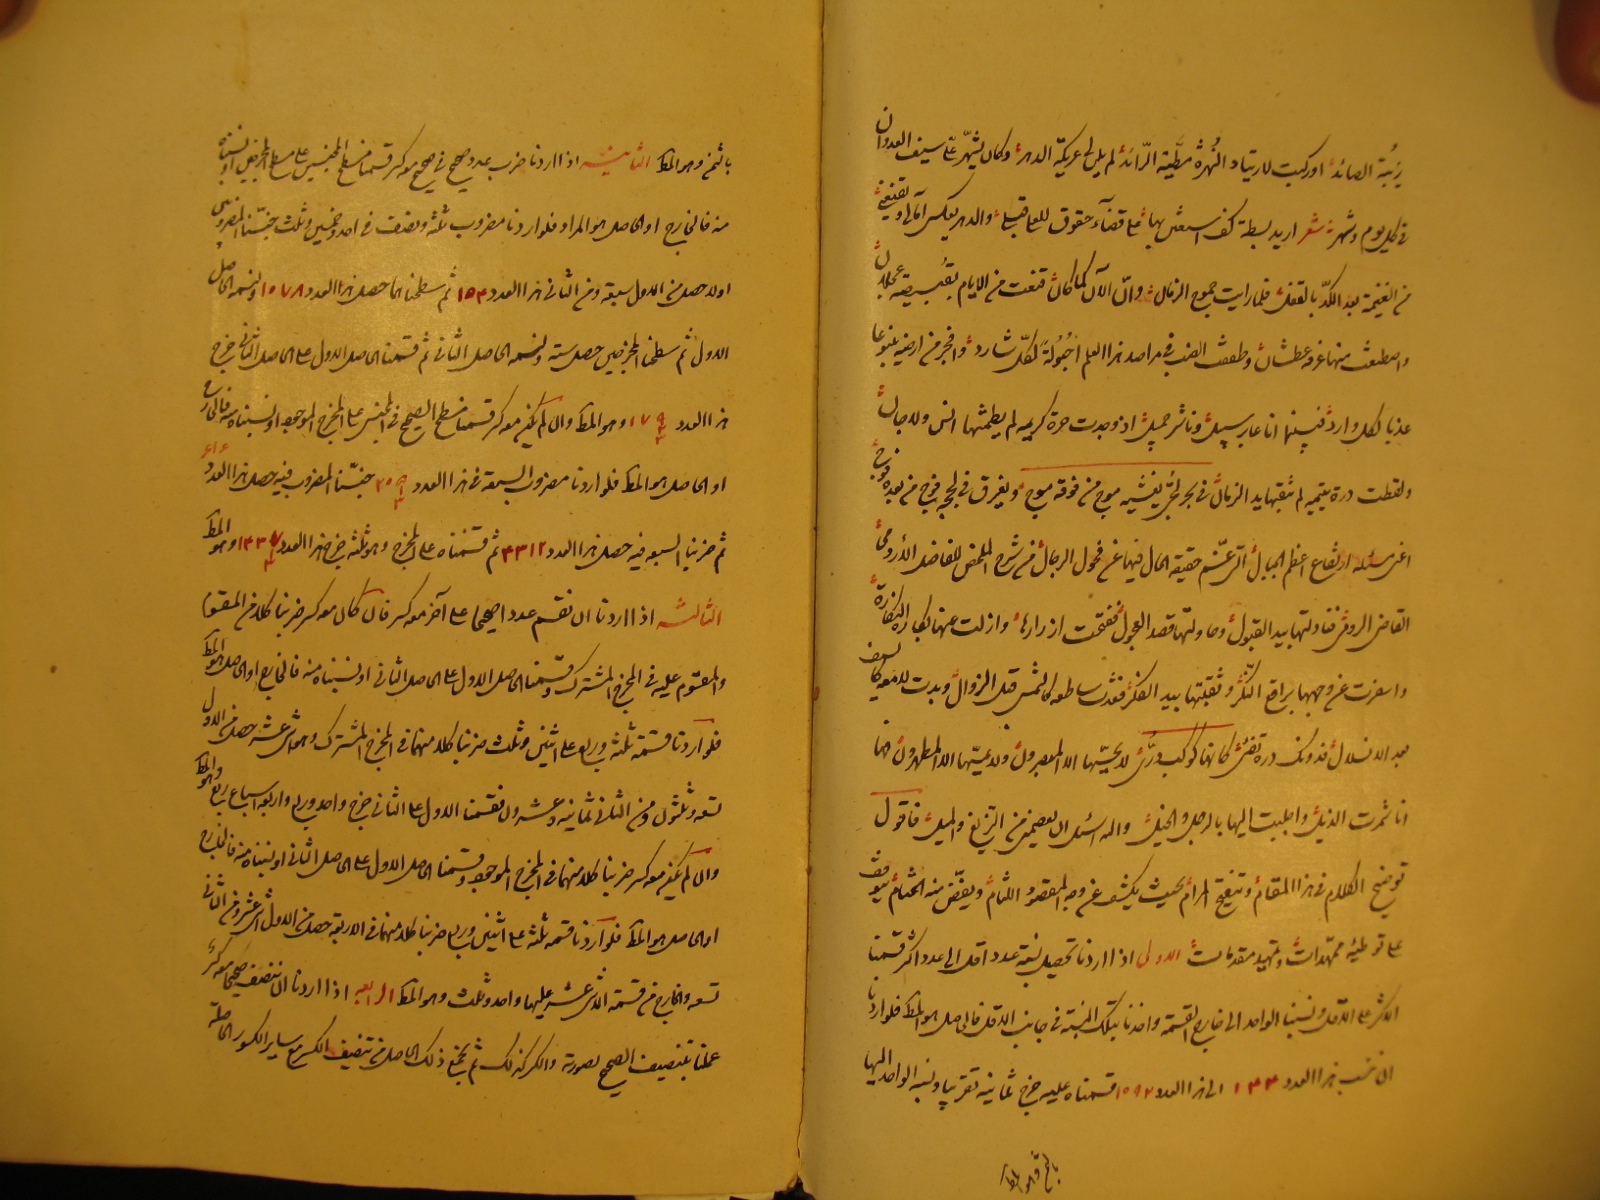 زبية الصائد او ركبت لارتياد النهزة مطية الرائد لم يلن لي عريكة الدهر وكان يشهر على سيف العدوان
في كل يوم وشهر شعر اريد بسطة كف استعين بها على قضاء حقوق للعلى قبلي والدهر يعكس آمالي ويقنعني
من الغنيمة بعد الكد بالقفل فلما رايت جموح الزمان وان الآن كما كان قنعت من الايام
واصطنعت منها غرفة عطشان وطفقت انصب في مراصد هذا العلم احبولة لكل شارد وافجر من ارضه ينبوعا
عذبا لكل وارد فبينما انا عابر سبيل وناشر جميل اذ وجدت حرة كريمة لم يطمثها انس ولا جان
ولقطت درة يتيمة لم تثقبها يد الزمان في بحر لجي يغشيه موج من فوقه موج ويغرق في لجه فوج من بعده فوج
اعنى مسئلة ارتفاع اعظم الجبال التي عسر حقيقة الحال فيها عن فحول الرجال من شرح الملخص للفاضل الرومي
القاضي الرومي فتناولتها بيد القبول وحاولتها قصد العجول ففتحت ازرارها وازلت عنها
واسفرت عن وجهها براقع التنكر وثقبتها بيد الفكر فغدت ساطعة كالشمس قبل الزوال وبدت لامعة كالسيف
بعد الانسلال فدونك درة تضئ كانها كوكب دري لا يجتنبها الا المبصرون ولا يمسها الا المطهرون ها
انا شمرت الذيل واجلبت اليها بالرجل والخيل والله اسئل ان يعصمني من الزيغ والميل فاقول
توضيح الكلام في هذا المقام وتنقيح المرام بحيث يكشف عن وجه المقصود اللثام ويفض منه الختام يتوقف
على توطئة ممهدات وتمهيد مقدمات الاولى اذا اردنا تحصيل نسبة عدد اقل الى عدد اكثر قسمنا
الاكثر على الاقل ونسبنا الواحد الى خارج القسمة واخذنا بتلك النسبة في جانب الاقل فالحاصل هو المط فلو اردنا
ان ننسب هذا العدد الى هذا العدد قسمناه عليه خرج ثمانية تقريبا ونسبة الواحد اليها
بالثمن وهو المط
بالثمن وهو المط الثانية اذا اردنا ضرب عدد صحيح في صحيح مع كسر قسمنا مسطح المجنسين على مسطح المخرجين او نسبناه
منه فالخارج او الحاصل هو المراد فلو اردنا مضروب ثلثة ونصف في احد وخمسين وثلث جنسنا المضروبين
اولا حصل من الاول سبعة ومن الثاني هذا العدد ١٥٤ ثم سطحناهما حصل هذا العدد ١٠٧٨ ولنسمه الحاصل
الاول ثم سطحنا المخرجين حصل ستة ولنسمه الحاصل الثاني ثم قسمنا الحاصل الاول على الحاصل الثاني خرج
هذا العدد ١٧٩ وهو المط وان لم يكن معه كسر قسمنا مسطح الصحيح في المجنس على المخرج الموجود او نسبناه منه فالخارج
او الحاصل هو المط فلو اردنا مضروب السبعة في هذا العدد جنسنا المضروب فيه حصل هذا العدد ٦١٦
ثم ضربنا السبعة فيه حصل هذا العدد ٤٣١٢ ثم قسمناه على المخرج وهو ثلثة خرج هذا العدد ١٤٣٧ وهو المط
الثالثة اذا اردنا ان نقسم عددا صحيحا على آخر مع كسر فان كان معه كسر ضربنا كلا من المقسوم
والمقسوم عليه في المخرج المشترك وقسمنا الحاصل الاول على الحاصل الثاني او نسبناه منه فالخارج او الحاصل هو المط
فلو اردنا قسمة ثلثة وربع على اثنين وثلث ضربنا كلا منهما في المخرج المشترك وهو اثنى عشر حصل من الاول
تسعة وثلثون ومن الثاني ثمانية وعشرون فقسمنا الاول على الثاني خرج واحد وربع واربعة اسباع ربع وهو المط
وان لم يكن معه كسر ضربنا كلا منهما في المخرج الموجود وقسمنا الحاصل الاول على الحاصل الثاني او نسبناه منه فالخارج
او الحاصل هو المط فلو اردنا قسمة ثلثة على اثنين وربع ضربنا كلا منهما في الاربعة حصل من الاول اثنى عشر ومن الثاني
تسعة والخارج من قسمة الاثنى عشر عليها واحد وثلث وهو المط الرابعة اذا اردنا ان ننصف صحيحا معه كسر
عملنا بتنصيف الصحيح لصورته والكسر كذلك ثم يجمع ذلك الحاصل من تنصيف الكسر مع ساير الكسور الحاصلة